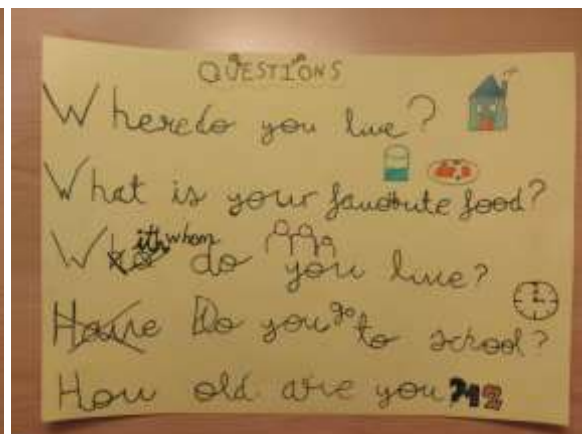 QUESTIONS
Where do you live?
What is your favourite food?
With whom do you live?
Have Do you go to school?
How old are you? 12